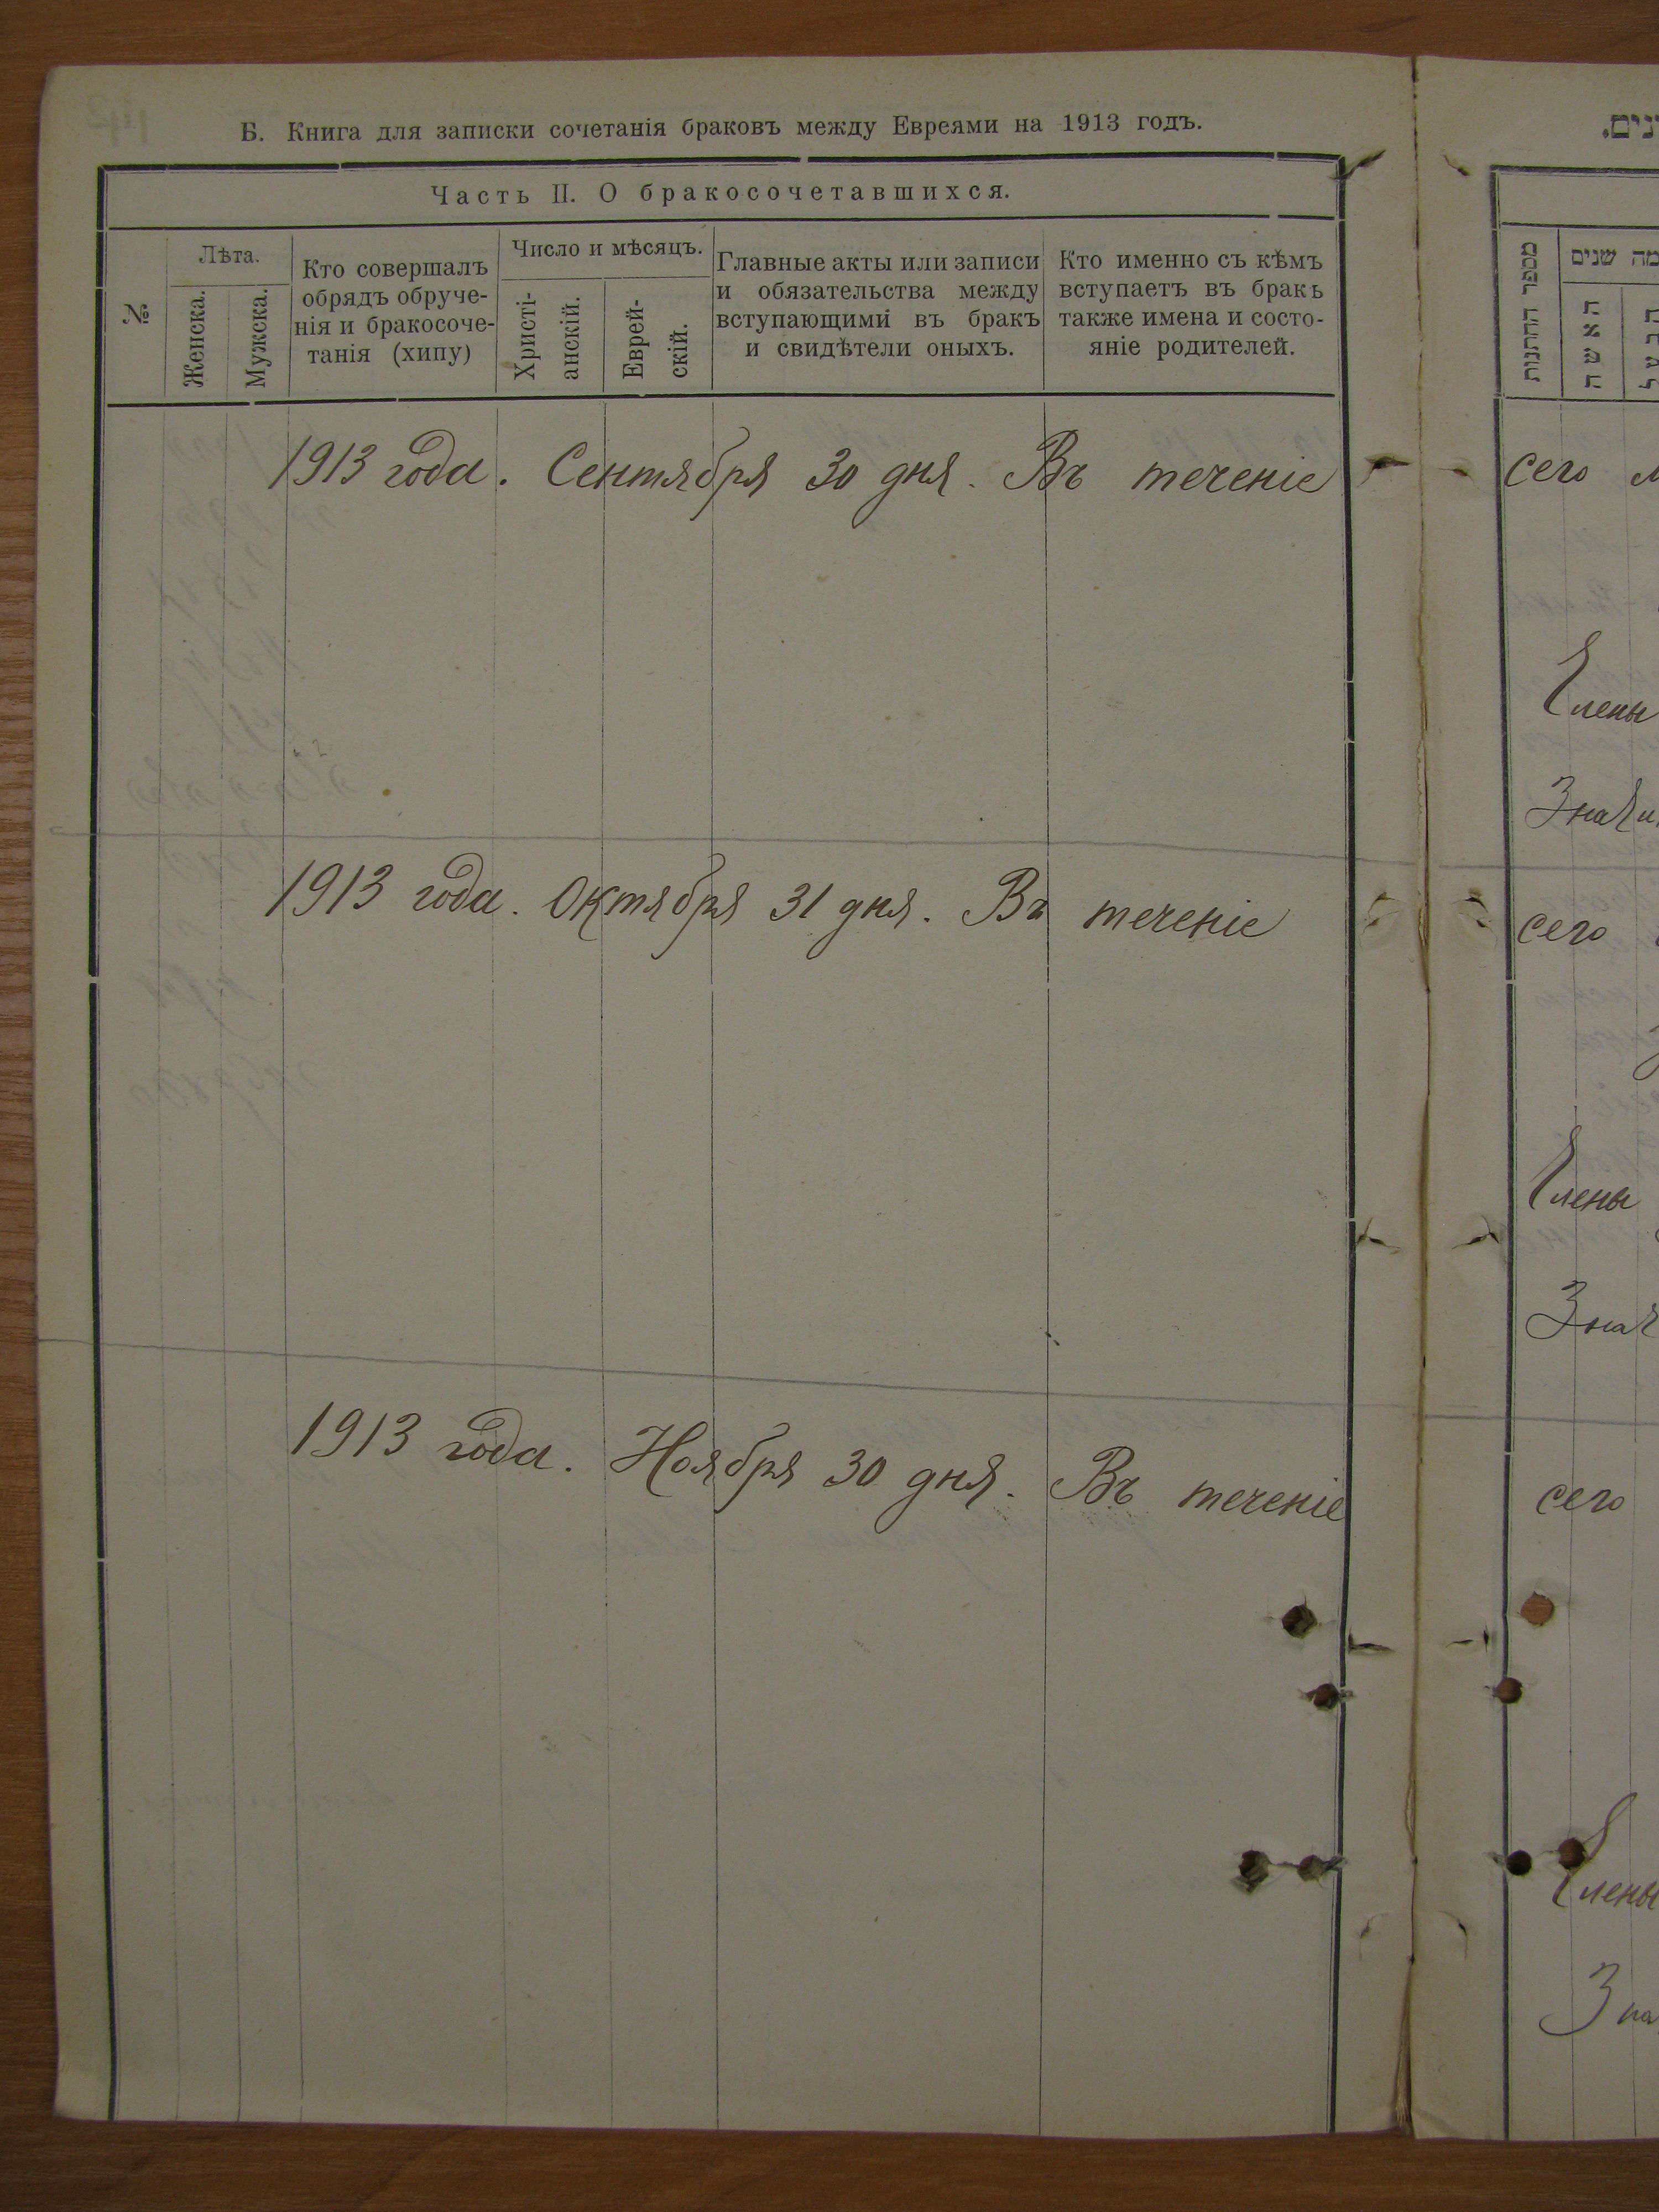 Б. Книга для записки сочетанія браковъ между Евреями на 1913 годъ.
Часть II. О бракосочетавшихся.
№
Лѣта.
Женска.
Мужска.
Кто совершалъ
обрядъ обруче-
нія и бракосоче-
танія (хипу)
Число и мѣсяцъ.
Христі-
анскій.
Еврей-
скій.
Главные акты или записи
и обязательства между
вступающими въ бракъ
и свидѣтели оныхъ.
Кто именно съ кѣмъ
вступаетъ въ бракъ
также имена и состо-
яніе родителей.
1913 года. Сентября 30 дня. Въ теченіе
1913 года. Октября 31 дня. Въ теченіе
1913 года. Ноября 30 дня. Въ теченіе
מספר החתנות
שנים
האשה
сего
Члены
сего
Члены
сего
Члены